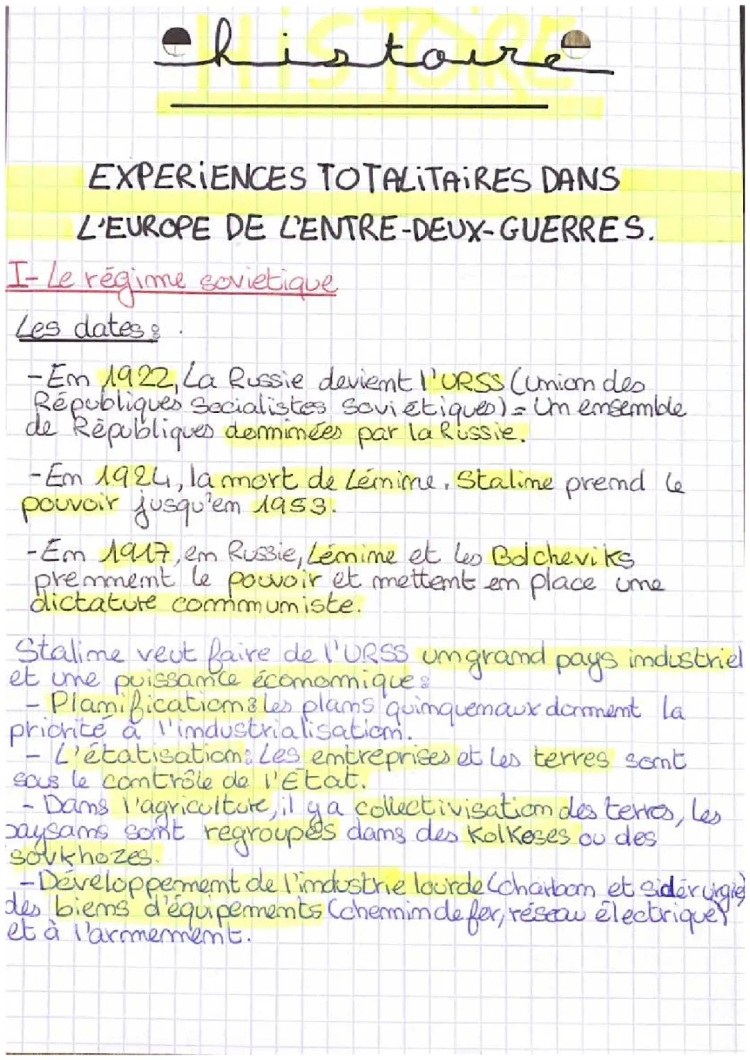 HiSTOiRE
histoire
EXPERiENCES TOTALiTAiRES DANS
L'EUROPE DE L'ENTRE-DEUX-GUERRES.
I- Le régime sovietique
Les dates :
- En 1922, La Russie devient l'URSS (union des
Républiques Socialistes Soviétiques) = Un ensemble
de Républiques dominées par la Russie.
- En 1924, la mort de Lénine, Staline prend le
pouvoir jusqu'en 1953.
- En 1917, en Russie, Lénine et les Bolcheviks
prennent le pouvoir et mettent en place une
dictature communiste.
Staline veut faire de l'URSS un grand pays industriel
et une puissance économique :
- Planification : les plans quinquenaux donnent la
priorité à l'industrialisation.
- L'étatisation : Les entreprises et les terres sont
sous le contrôle de l'Etat.
- Dans l'agriculture, il y a collectivisation des terres, les
paysans sont regroupés dans des Kolkoses ou des
sovkhozes.
- Développement de l'industrie lourde (charbon et sidérurgie)
des biens d'équipements (chemin de fer, réseau électrique)
et à l'armement.